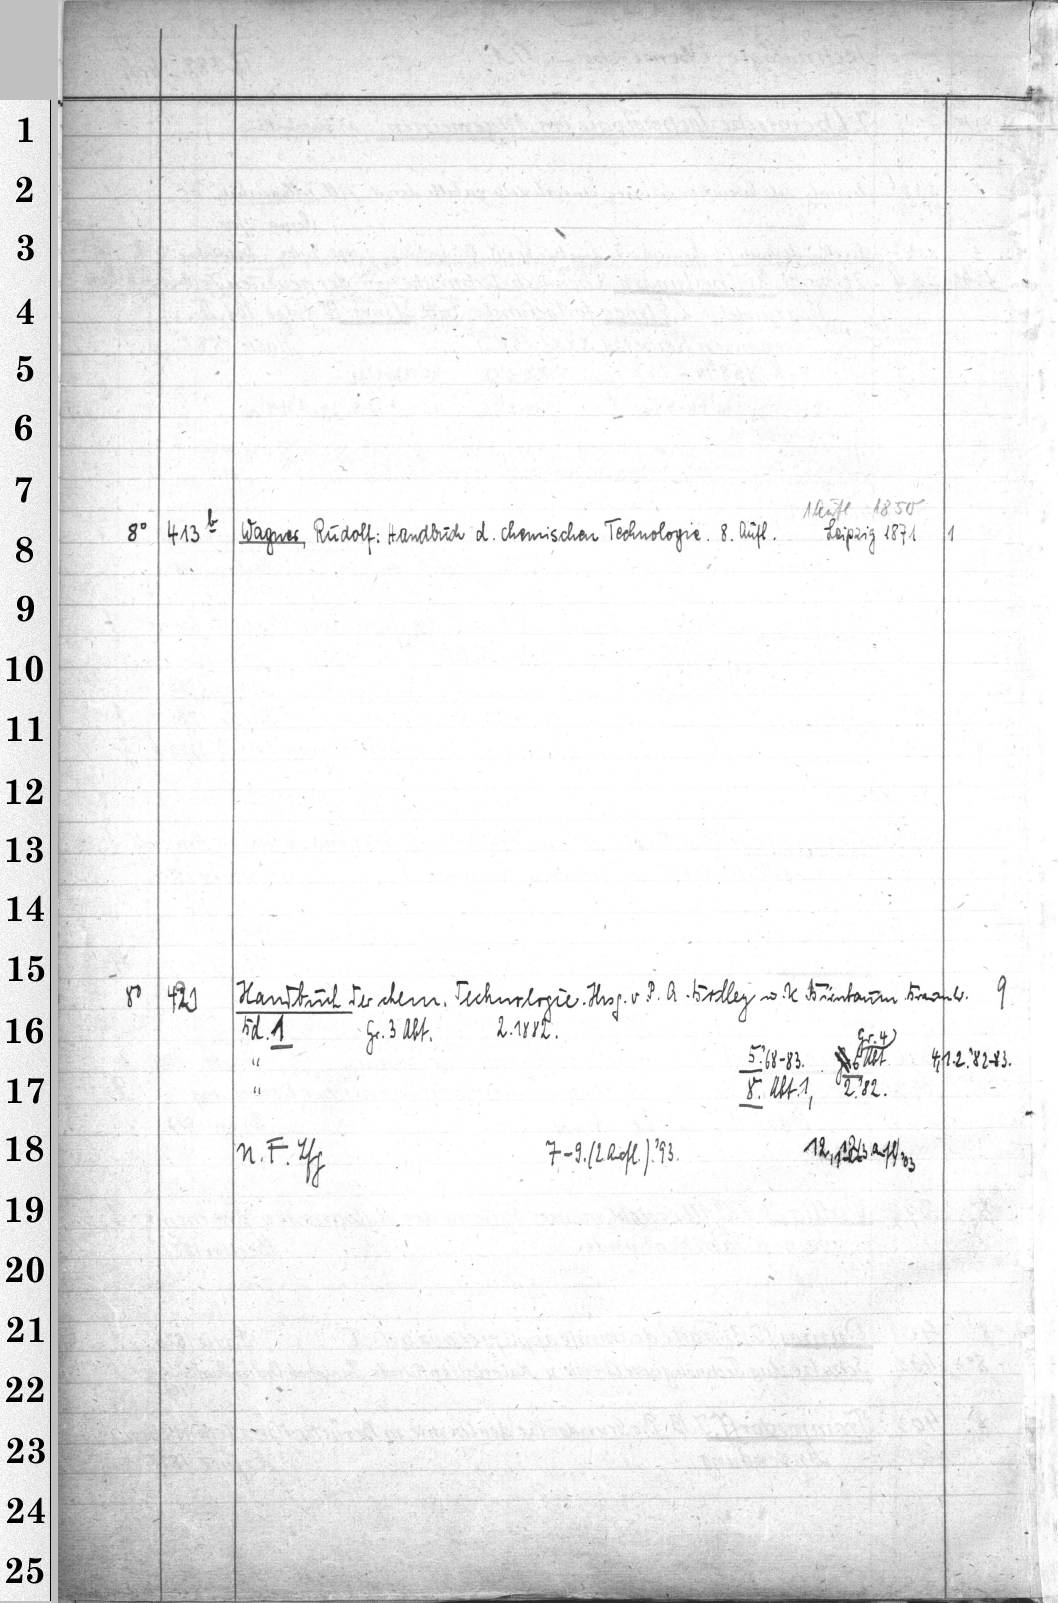 1
2
3
4
5
6
7
1 Aufl 1850
8° 413 b Wagner, Rudolf: Handbuch d. chemischen Technologie. 8. Aufl. Leipzig 1871 1
8
9
10
11
12
13
14
15
8° 421 Handbuch der chem. Technologie. Hrsg. v P. A. Bolley u. K Birnbaum Braunschw. 9
16 Bd. 1 Gr. 3 Abt. 2. 1882. Gr. 4)
" 5. '68-83. 6 Abt 4,1-2. '82-83.
17 " 8. Abt. 1, 2. '82.
18 N. F. Lfg 7-9. (2 Aufl.). '93. 12, (3. Aufl) '03
19
20
21
22
23
24
25